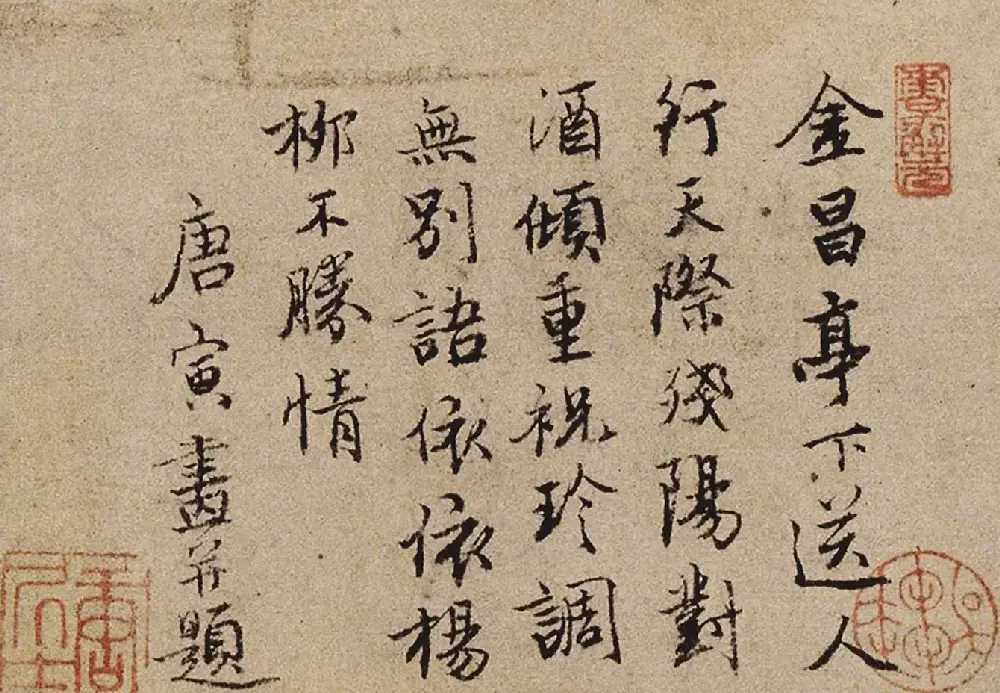 金昌亭下送人
行天際殘陽對
酒傾重祝珍調
無別語依依楊
柳不勝情
唐寅畫并題